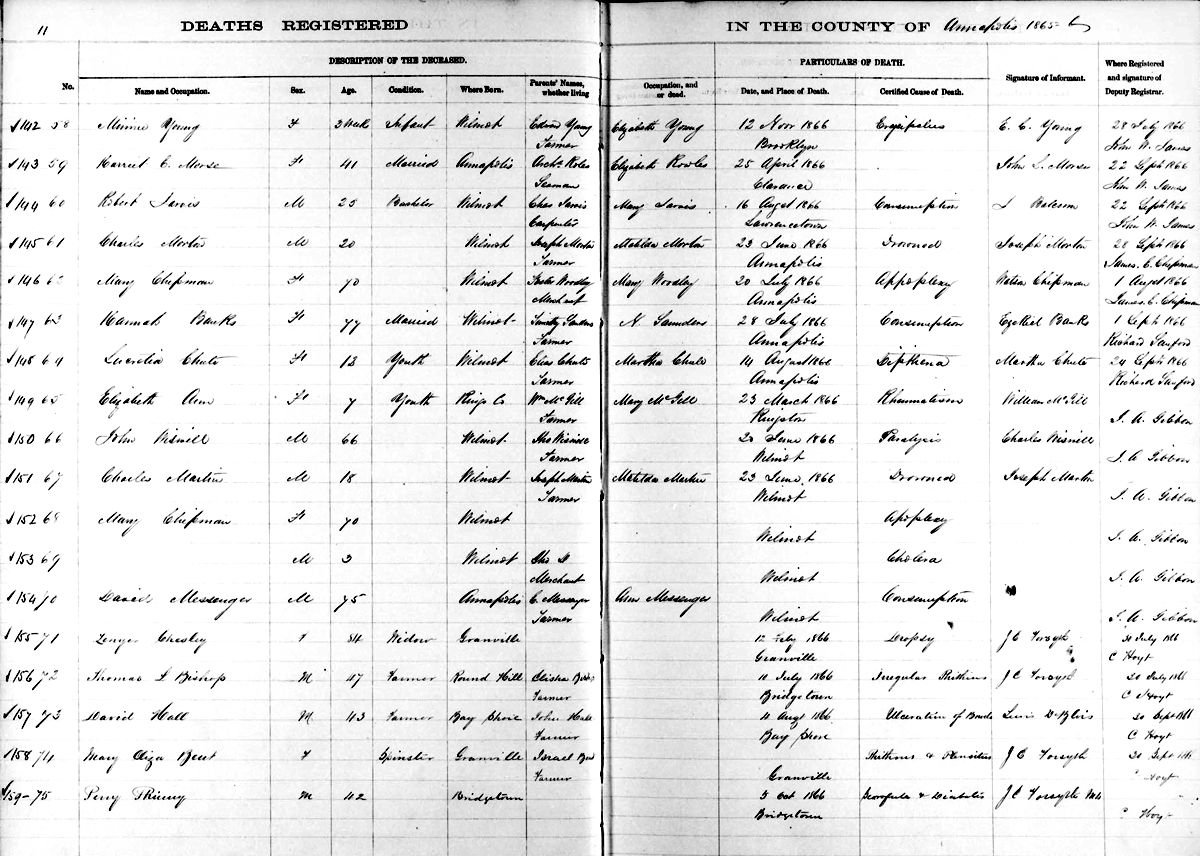 11 DEATHS REGISTERED IN THE COUNTY OF Annapolis 1865-6
DESCRIPTION OF THE DECEASED. PARTICULARS OF DEATH.
No. Name and Occupation. Sex. Age. Condition. Where Born. Parents' Names, whether living Occupation, and or dead. Date, and Place of Death. Certified Cause of Death. Signature of Informant. Where Registered and signature of Deputy Registrar.
142 58 Minnie Young F 3 week Infant Wilmot Young Elizabeth Young 12 1866 E. C. Young 28 July 1866
Farmer Brooklyn John W. James
143 59 Harriet E. Morse F 41 Married Annapolis Elizabeth Rowles 25 April 1866 John L. Morse 22 Sept 1866
Seaman Clarance John W. James
144 60 Robert Jarvis M 25 Bachelor Wilmot Chas Jarvis Mary Jarvis 16 Augst 1866 Consumption Balcom 22 Sept 1866
Carpenter Lawrencetown John W. James
145 61 Charles Morton M 20 Wilmot Joseph Morton Matilda Morton 23 June 1866 Drowned Joseph Morton 28 Sept 1866
Farmer Annapolis James. C. Chipman
146 62 Mary Chipman F 70 Wilmot Woodley Mary Woodley 20 July 1866 Appoplexy Chipman 1 Augst 1866
Merchant Annapolis James. C. Chipman
147 63 Hannah Banks F 77 Married Wilmot N. Saunders 28 July 1866 Consumption Ezekiel Banks 1 Sept 1866
Farmer Annapolis Richard
148 64 Lucretia Chute F 13 Youth Wilmot Elias Chute Martha Chute 14 August 1866 Dipthena Martha Chute 24 Sept 1866
Farmer Annapolis Richard
149 65 Elizabeth Ann F 7 Youth Kings Co Wm McGill Mary McGill 23 March 1866 Rheumatism William McGill
Farmer Kingston J. A. Gibbon
150 66 John Wisnill M 66 Wilmot Wisnill June 1866 Paralysis Charles Wisnill
Farmer Wilmot J. A. Gibbon
151 67 Charles Martin M 18 Wilmot Joseph Martin Matilda 23 June 1866 Drowned Joseph
Farmer Wilmot J. A. Gibbon
152 68 Mary Chipman F 70 Wilmot Apoplexy
Wilmot J. A. Gibbon
153 69 M 3 Wilmot Cholera
Merchant Wilmot J. A. Gibbon
154 70 David Messenger M 75 Annapolis C. Messenger Ann Messenger Consumption
Farmer Wilmot J. A. Gibbon
155 71 Chesley F 84 Widow Granville 12 July 1866 Dropsy J C Forsyth 31 July 1866
Granville C Hoyt
156 72 Thomas L Bishop M 47 Farmer Round Hill Elisha 10 July 1866 Irregular Phthisis J C Forsyth 20 July 1866
Farmer Bridgetown C Hoyt
157 73 David Hall M 43 Farmer Bay Shore John Hall 11 Augt 1866 Ulceration of Bowels Lewis 20 Sept 1866
Farmer Bay Shore C Hoyt
158 74 Mary Eliza Bent F Spinster Granville Israel Bent Phthisis & J C Forsyth 20 Sept 1866
Farmer Granville Hoyt
159 75 Perry Phinney M 42 Bridgetown 3 Oct 1866 Scorofula & Diabetis J C Forsyth
Bridgetown C Hoyt